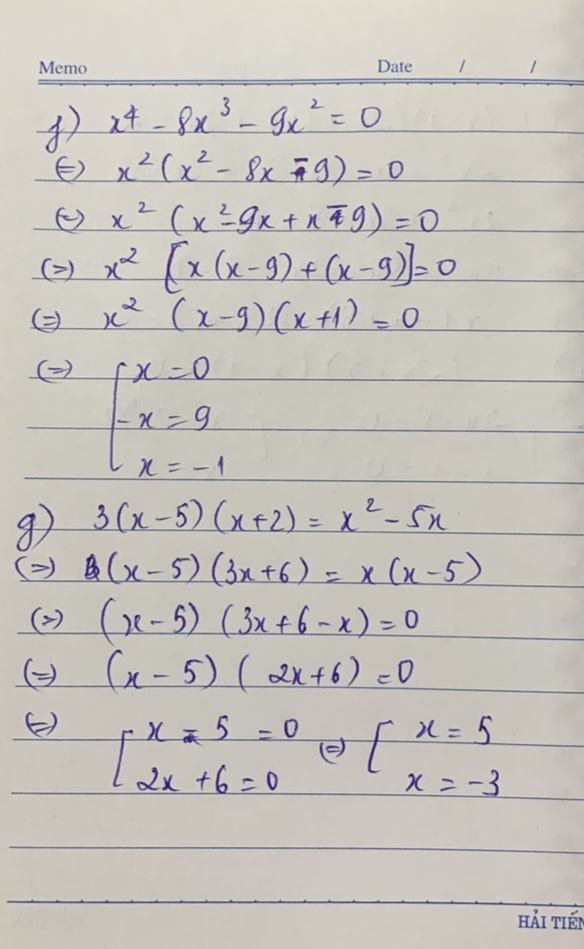 Memo Date / /
f) x⁴ - 8x³ - 9x² = 0
(=) x² (x² - 8x - 9) = 0
(=) x² (x² - 9x + x - 9) = 0
(=) x² [x(x-9) + (x-9)] = 0
(=) x² (x-9)(x+1) = 0
(=) [ x = 0
x = 9
x = -1
g) 3(x-5)(x+2) = x² - 5x
(=) (x-5)(3x+6) = x(x-5)
(=) (x-5)(3x+6-x) = 0
(=) (x-5)(2x+6) = 0
(=) [ x - 5 = 0 (=) [ x = 5
2x + 6 = 0 x = -3
HẢI TIẾN